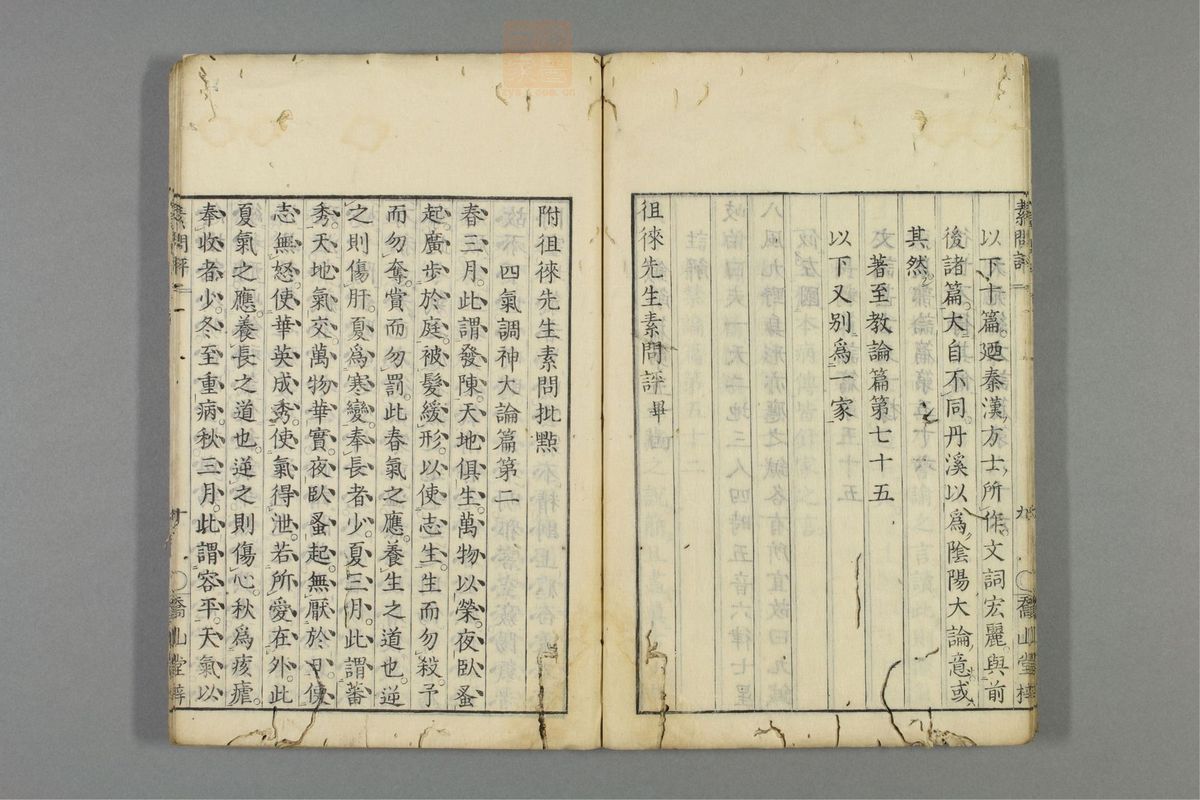 以下十篇廼秦漢方士所作文詞宏麗與前
後諸篇大自不同丹溪以爲陰陽大論意或
其然
著至教論篇第七十五
以下又别爲一家
徂徠先生素問評畢
素問評
九
喬山堂梓
附徂徠先生素問批點
四氣調神大論篇第二
春三月。此謂發陳。天地俱生。萬物以榮。夜臥蚤
起。廣步於庭。被髮緩形。以使志生。生而勿殺。予
而勿奪。賞而勿罰。此春氣之應。養生之道也。逆
之則傷肝。夏爲寒變。奉長者少。夏三月。此謂蕃
秀。天地氣交。萬物華實。夜臥蚤起。無厭於日。使
志無怒。使華英成秀。使氣得泄。若所愛在外。此
夏氣之應。養長之道也。逆之則傷心。秋爲痎瘧。
奉收者少。冬至重病。秋三月。此謂容平。天氣以
素問評
十
喬山堂梓